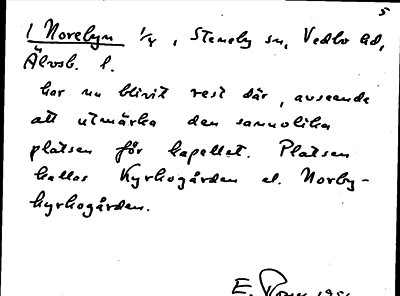 5
I Norebyn 1/4, Steneby sn, Vedbo hd,
Älvsb. l.
har nu blivit rest där, avseende
att utmärka den sannolika
platsen för kapellet. Platsen
kallas Kyrkogården el. Norby-
kyrkogården.
E.